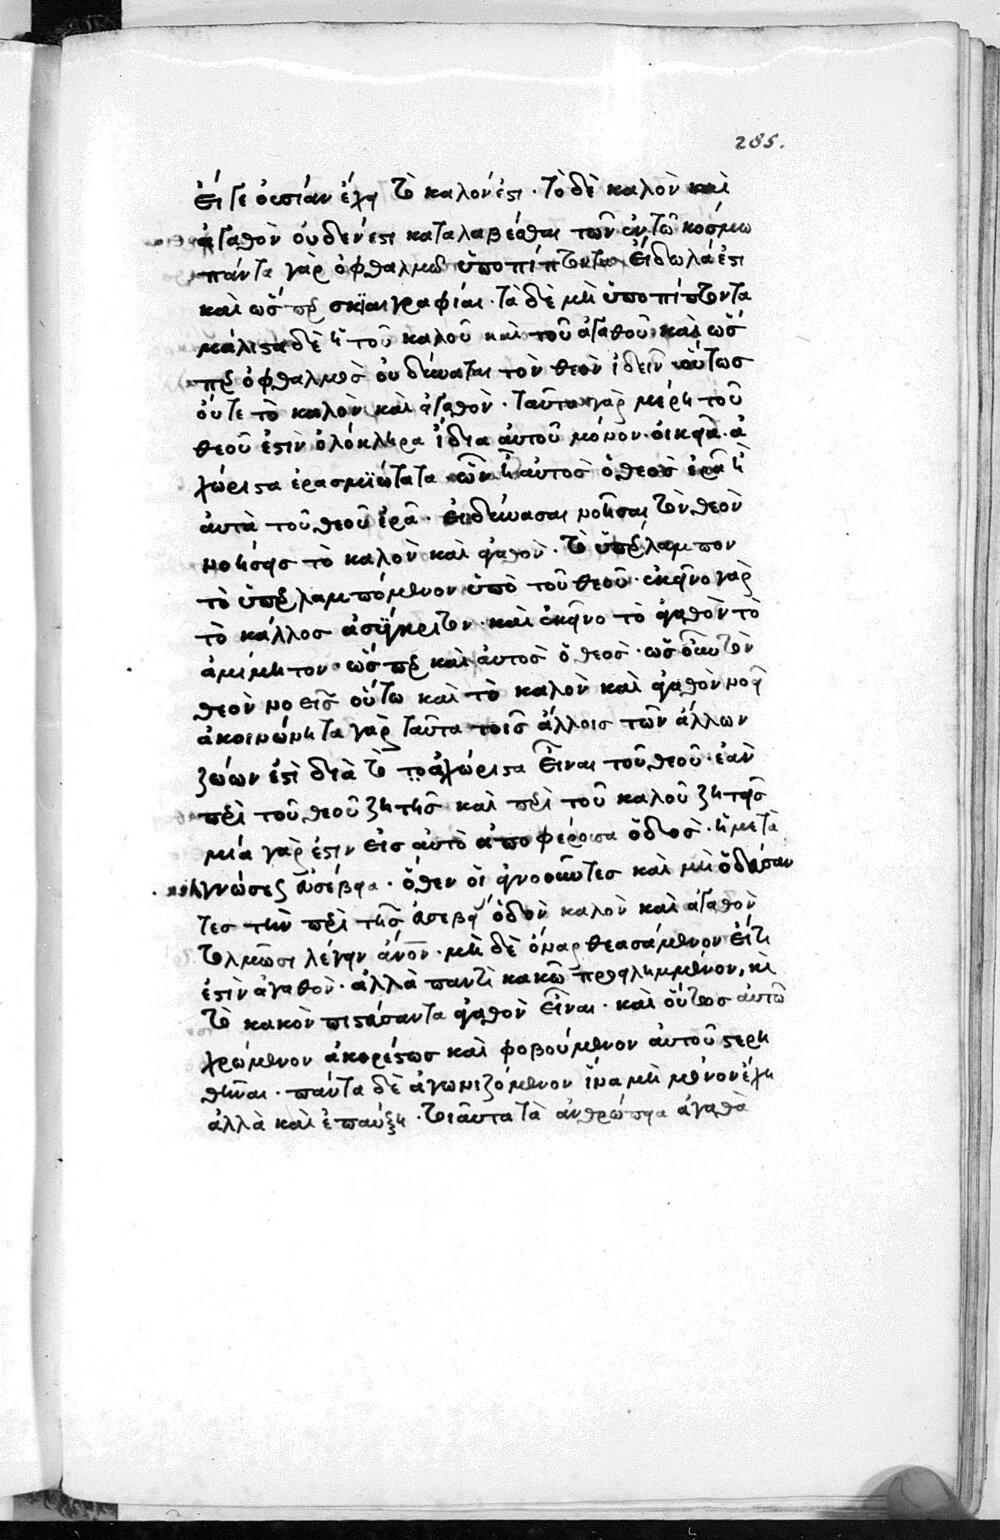 285.
εἴ γε οὐσίαν ἔχει τὸ καλόν ἐστι · τὸ δὲ καλὸν καὶ
ἀγαθὸν οὐδέν ἐστι καταλαβέσθαι τῶν ἐν τῶ κόσμω
πάντα γὰρ ὀφθαλμῶ ὑποπίπτοντα εἴδωλά ἐστι
καὶ ὥσπερ σκιαγραφίαι · τὰ δὲ μὴ ὑποπίπτοντα
μάλιστα δὲ ἡ τοῦ καλοῦ καὶ τοῦ ἀγαθοῦ · καὶ ὥσ
περ ὀφθαλμὸς οὐ δύναται τὸν θεὸν ἰδεῖν οὕτως
οὔτε τὸ καλὸν καὶ ἀγαθὸν · ταῦτα γὰρ μέρη τοῦ
θεοῦ ἐστὶν ὁλόκληρα ἴδια αὐτοῦ μόνον · οἰκεῖα · ἀ
χώριστα ἐρασμιώτατα ὧν ἢ αὐτὸς ὁ θεὸς ἐρᾶ ἢ
αὐτὰ τοῦ θεοῦ ἐρᾶ · εἰ δύνασαι νοῆσαι τὸν θεὸν
νοήσεις τὸ καλὸν καὶ ἀγαθὸν · τὸ ὑπέρλαμπον
τὸ ὑπερλαμπόμενον ὑπὸ τοῦ θεοῦ · ἐκεῖνο γὰρ
τὸ κάλλος ἀσύγκριτον · καὶ ἐκεῖνο τὸ ἀγαθὸν τὸ
ἀμίμητον · ὥσπερ καὶ αὐτὸς ὁ θεὸς · ὡς οὖν τὸν
θεὸν νοεῖς οὕτω καὶ τὸ καλὸν καὶ ἀγαθὸν νόει
ἀκοινώνητα γὰρ ταῦτα τοῖς ἄλλοις τῶν ἄλλων
ζώων ἐστὶ διὰ τὸ ἀχώριστα εἶναι τοῦ θεοῦ · ἐὰν
περὶ τοῦ θεοῦ ζητῆς καὶ περὶ τοῦ καλοῦ ζητεῖς
μία γάρ ἐστιν εἰς αὐτὸ ἀποφέρουσα ὁδὸς · ἡ μετὰ
γνώσεως εὐσέβεια · ὅθεν οἱ ἀγνοοῦντες καὶ μὴ ὁδεύσαν
τες τὴν περὶ τῆς εὐσεβείας ὁδὸν καλὸν καὶ ἀγαθὸν
τολμῶσι λέγειν ἄνον · μὴ δὲ ὄναρ θεασάμενον εἴ τι
ἐστὶν ἀγαθὸν · ἀλλὰ παντὶ κακῶ προειλημμένον, καὶ
τὸ κακὸν πιστεύσαντα ἀγαθὸν εἶναι · καὶ οὕτως αὐτῶ
χρώμενον ἀκορέστως καὶ φοβούμενον αὐτοῦ στερη
θῆναι · πάντα δὲ ἀγωνιζόμενον ἵνα μὴ μόνον ἔχη
ἀλλὰ καὶ ἐπαύξη · τοιαῦτα τὰ ἀνθρώπεια ἀγαθὰ